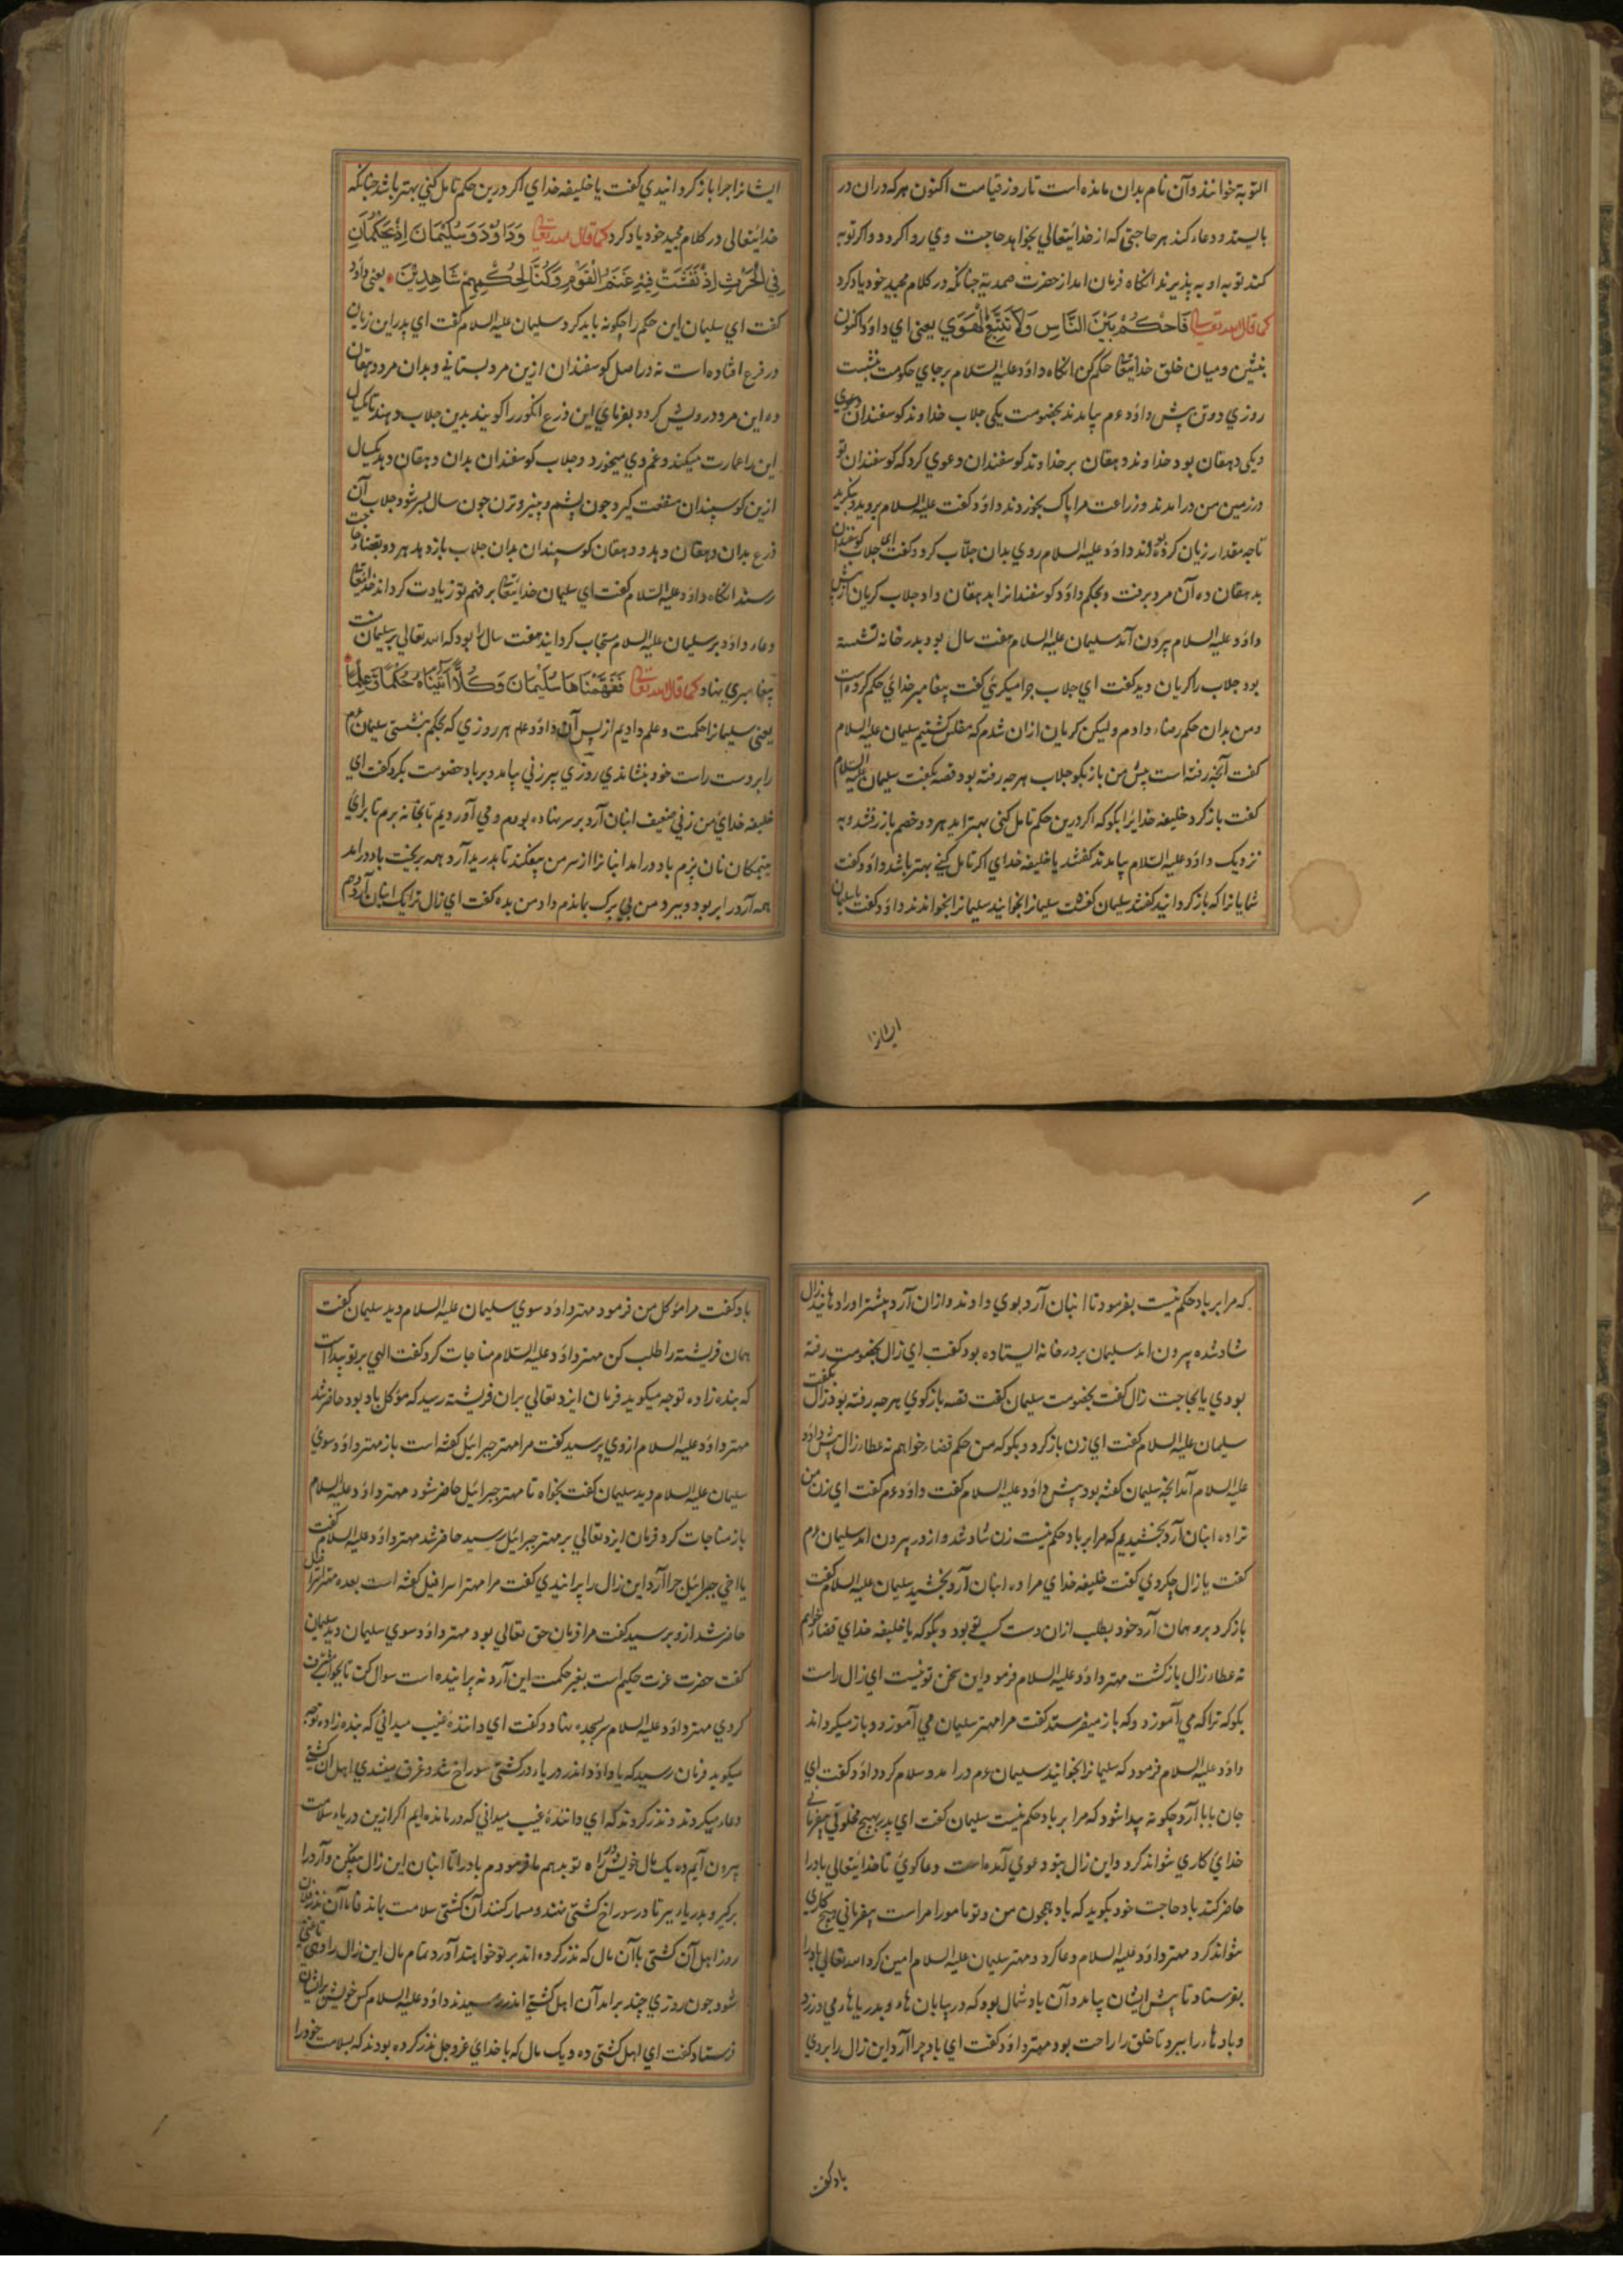 التوبة خوانند و آن نام بدان مانده است تا روز قیامت اکنون هر که دران در
بایستد و دعا کند هر حاجتی که از خدایتعالی بخواهد حاجت وی روا کردد و اکر توبه
کند توبه او به پذیرند انکاه فرمان امد از حضرت صمدیة چنانکه در کلام مجید خود یاد کرد
کما قال الله تعالی فَاحْكُمْ بَيْنَ النَّاسِ وَلَا تَتَّبِعِ الْهَوَي یعنی ای داود اکنون
بنشین و میان خلق خدایتعالی حکم کن انکاه داود علیه السلام بر جای حکومت بنشست
روزی دو تن پیش داود عم بیامدند بخصومت یکی جلاب خداوند کوسفندان
و یکی دهقان بود خداوند دهقان بر خداوند کوسفندان دعوی کرد که کوسفندان تو
در زمین من درامدند و زراعت مرا پاک بخوردند داود کفت علیه السلام بروید و بنکرید
تا چه مقدار زیان کرده بودند داود علیه السلام روی بدان جلّاب کرد و کفت ای جلاب کوسفندان
بدهقان ده آن مرد برفت و بحکم داود کوسفندانرا بدهقان داد جلاب کریان از پیش
داود علیه السلام بیرون آمد سلیمان علیه السلام هفت سال بود بدر خانه نشسته
بود جلاب را کریان دید کفت ای جلاب چرا میکریی کفت پیغامبر خدای حکم کرده است
و من بدان حکم رضاء دادم و لیکن کریان ازان شدم که مفلس کشتیم سلیمان علیه السلام
کفت آنچه رفته است پیش من باز بکو جلاب هر چه رفته بود قصه بکفت سلیمان علیه السلام
کفت باز کرد خلیفه خدایرا بکو که اکر درین حکم تامل کنی بهتر اید هر دو خصم باز رفتند و به
نزدیک داود علیه السلام بیامدند کفتند یا خلیفه خدای اکر تامل کنی بهتر باشد داود کفت
شمایانرا که باز کردانید کفتند سلیمان کفت سلیمانرا بخوانید سلیمانرا بخواندند داود کفت یا سلیمان
ایشانرا
ایشانرا چرا باز کردانیدی کفت یا خلیفه خدای اکر درین حکم تامل کنی بهتر باشد چنانکه
خدایتعالی در کلام مجید خود یاد کرد کما قال الله تعالی وَدَاوُدَ وَسُلَيْمَانَ إِذْ يَحْكُمَانِ
فِي الْحَرْثِ إِذْ نَفَشَتْ فِيهِ غَنَمُ الْقَوْمِ وَكُنَّا لِحُكْمِهِمْ شَاهِدِيْنَ یعنی داود
کفت ای سلیمان این حکم را چکونه باید کرد سلیمان علیه السلام کفت ای پدر این زیان
در فرع افتاده است نه در اصل کوسفندان ازین مرد بستانی و بدان مرد دهقان
ده این مرد درویش کردد بفرمای این ذرع انکور را کویند بدین جلاب دهند تا یکسال
این را عمارت میکند و غم وی میخورد و جلاب کوسفندان بدان دهقان دهد یکسال
ازین کوسپندان منفعت کیرد چون پشم و پنیر و ترن چون سال بسر شود جلاب آن
ذرع بدان دهقان دهد و دهقان کوسپندان بدان جلاب باز دهد هر دو بقضاء حاجت
رسند انکاه داود علیه السلام کفت ای سلیمان خدایتعالی بر فهم تو زیادت کرداند خدایتعالی
دعاء داود بر سلیمان علیه السلام مستجاب کردانید هفت سال را بود که الله تعالی بر سلیمان منت
پیغامبری نهاد کما قال الله تعالی فَفَهَّمْنَاهَا سُلَيْمَانَ وَكُلًّا آتَيْنَاهُ حُكْمًا وَّعِلْمًا
یعنی سلیمانرا حکمت و علم دادیم از پس آن داود عم هر روزی که بحکم بنشستی سلیمان عم
را بر دست راست خود بنشاندی روزی پیر زنی بیامد و بر باد خصومت بکرد کفت ای
خلیفه خدای من زنی ضعیف انبان آرد بر سر نهاده بودم و می آوردیم تا بخانه برم تا برای
یتیمکان نان پزم باد درامد انبانرا از سر من بیفکند تا بدرید آرد همه بریخت باد درامد
همه آرد را بربود و ببرد و من بی برک بماندم داد من بده کفت ای زال ترا یک انبان آرد دهم
که مرا بر باد حکم نیست بفرمود تا انبان آرد بوی دادند و ازان آرد بیشتر او را دهانید زال
شاد شده بیرون امد سلیمان بر در خانه ایستاده بود کفت ای زال بخصومت رفته
بودی یا بحاجت زال کفت بخصومت سلیمان کفت قصه باز کوی هر چه رفته بود زال بکفت
سلیمان علیه السلام کفت ای زن باز کرد و بکو که من حکم قضاء خواهم نه عطاء زال پیش داود
علیه السلام آمد انچه سلیمان کفته بود پیش داود علیه السلام کفت داود عم کفت ای زن من
ترا ده انبان آرد بخشیدیم که مرا بر باد حکم نیست زن شاد شد و از در بیرون امد سلیمان عم
کفت یا زال چکردی کفت خلیفه خدای مرا ده انبان آرد بخشید سلیمان علیه السلام کفت
باز کرد برو همان آرد خود بطلب ازان دست کسی تو بود و بکو که یا خلیفه خدای قضاء خواهم
نه عطاء زال باز کشت مهتر داود علیه السلام فرمود این سخن تو نیست ای زال راست
بکو که ترا که می آموزد و که باز میفرستد کفت مرا مهتر سلیمان می آموزد و باز میکرداند
داود علیه السلام فرمود که سلیمانرا بخوانید سلیمان عم درامد و سلام کرد داود کفت ای
جان بابا آرد چکونه پیدا شود که مرا بر باد حکم نیست سلیمان کفت ای پدر هیچ مخلوقی بیفرمانی
خدای کاری نتواند کرد و این زال بنو دعوی آمده است دعا کوی تا خدایتعالی باد را
حاضر کند باد حاجت خود بکوید که باد همچون من و تو مامور امر است بیفرمانی هیچ کاری
نتواند کرد مهتر داود علیه السلام دعا کرد و مهتر سلیمان علیه السلام امین کرد الله تعالی باد را
بفرستاد تا پیش ایشان بیامد و آن باد شمال بود که در بیابان هاء و بدریاهاء می وزد
و بادهاء را ببرد تا خلق را راحت بود مهتر داود کفت ای باد چرا آرد این زال را بردی
باد کفت
باد کفت مرا موکل من فرمود مهتر داود سوی سلیمان علیه السلام دید سلیمان کفت
همان فریشته را طلب کن مهتر داود علیه السلام مناجات کرد کفت الهی بر تو پیدا است
که بنده زاده تو چه میکوید فرمان ایزد تعالی بران فریشته رسید که موکل باد بود حاضر شد
مهتر داود علیه السلام از وی پرسید کفت مرا مهتر جبرائیل کفته است باز مهتر داود سوی
سلیمان علیه السلام دید سلیمان کفت بخواه تا مهتر جبرائیل حاضر شود مهتر داود علیه السلام
باز مناجات کرد فرمان ایزد تعالی بر مهتر جبرائیل رسید حاضر شد مهتر داود علیه السلام کفت
یا اخی جبرائیل چرا آرد این زال را پرانیدی کفت مرا مهتر اسرافیل کفته است بعده مهتر اسرافیل
حاضر شد ازو پرسید کفت مرا فرمان حق تعالی بود مهتر داود سوی سلیمان دید سلیمان
کفت حضرت عزت حکیم است بغیر حکمت این آرد نه پرانیده است سوال کن تا بجواب مشرف
کردی مهتر داود علیه السلام سر بسجده نهاد و کفت ای دانندهٔ غیب میدانی که بنده زاده تو چه
میکوید فرمان رسید که یا داود اندر دریاء در کشتی سوراخ شد و غرق میشدی اهل آن کشتی
دعاء میکردند و نذر کردند که ای دانندهٔ غیب میدانی که درمانده ایم اکر ازین دریاء سلامت
بیرون آییم ده یک مال خویش در راه تو بدهیم ما فرمودیم باد را تا انبان این زال بیفکن و آرد را
برکیر و بدریاء ببر تا در سوراخ کشتی نهند و مسمار کنند آن کشتی سلامت بماند فاما آن نذر فلان
روز اهل آن کشتی با آن مال که نذر کرده اند بر تو خواهند آورد تمام مال این زال را دهی تا غنی
شود چون روزی چند برامد آن اهل کشتی اندر رسیدند داود علیه السلام کس خویش بر ایشان
فرستاد کفت ای اهل کشتی ده و یک مال که با خدای عز و جل نذر کرده بودند که بسلامت خود را